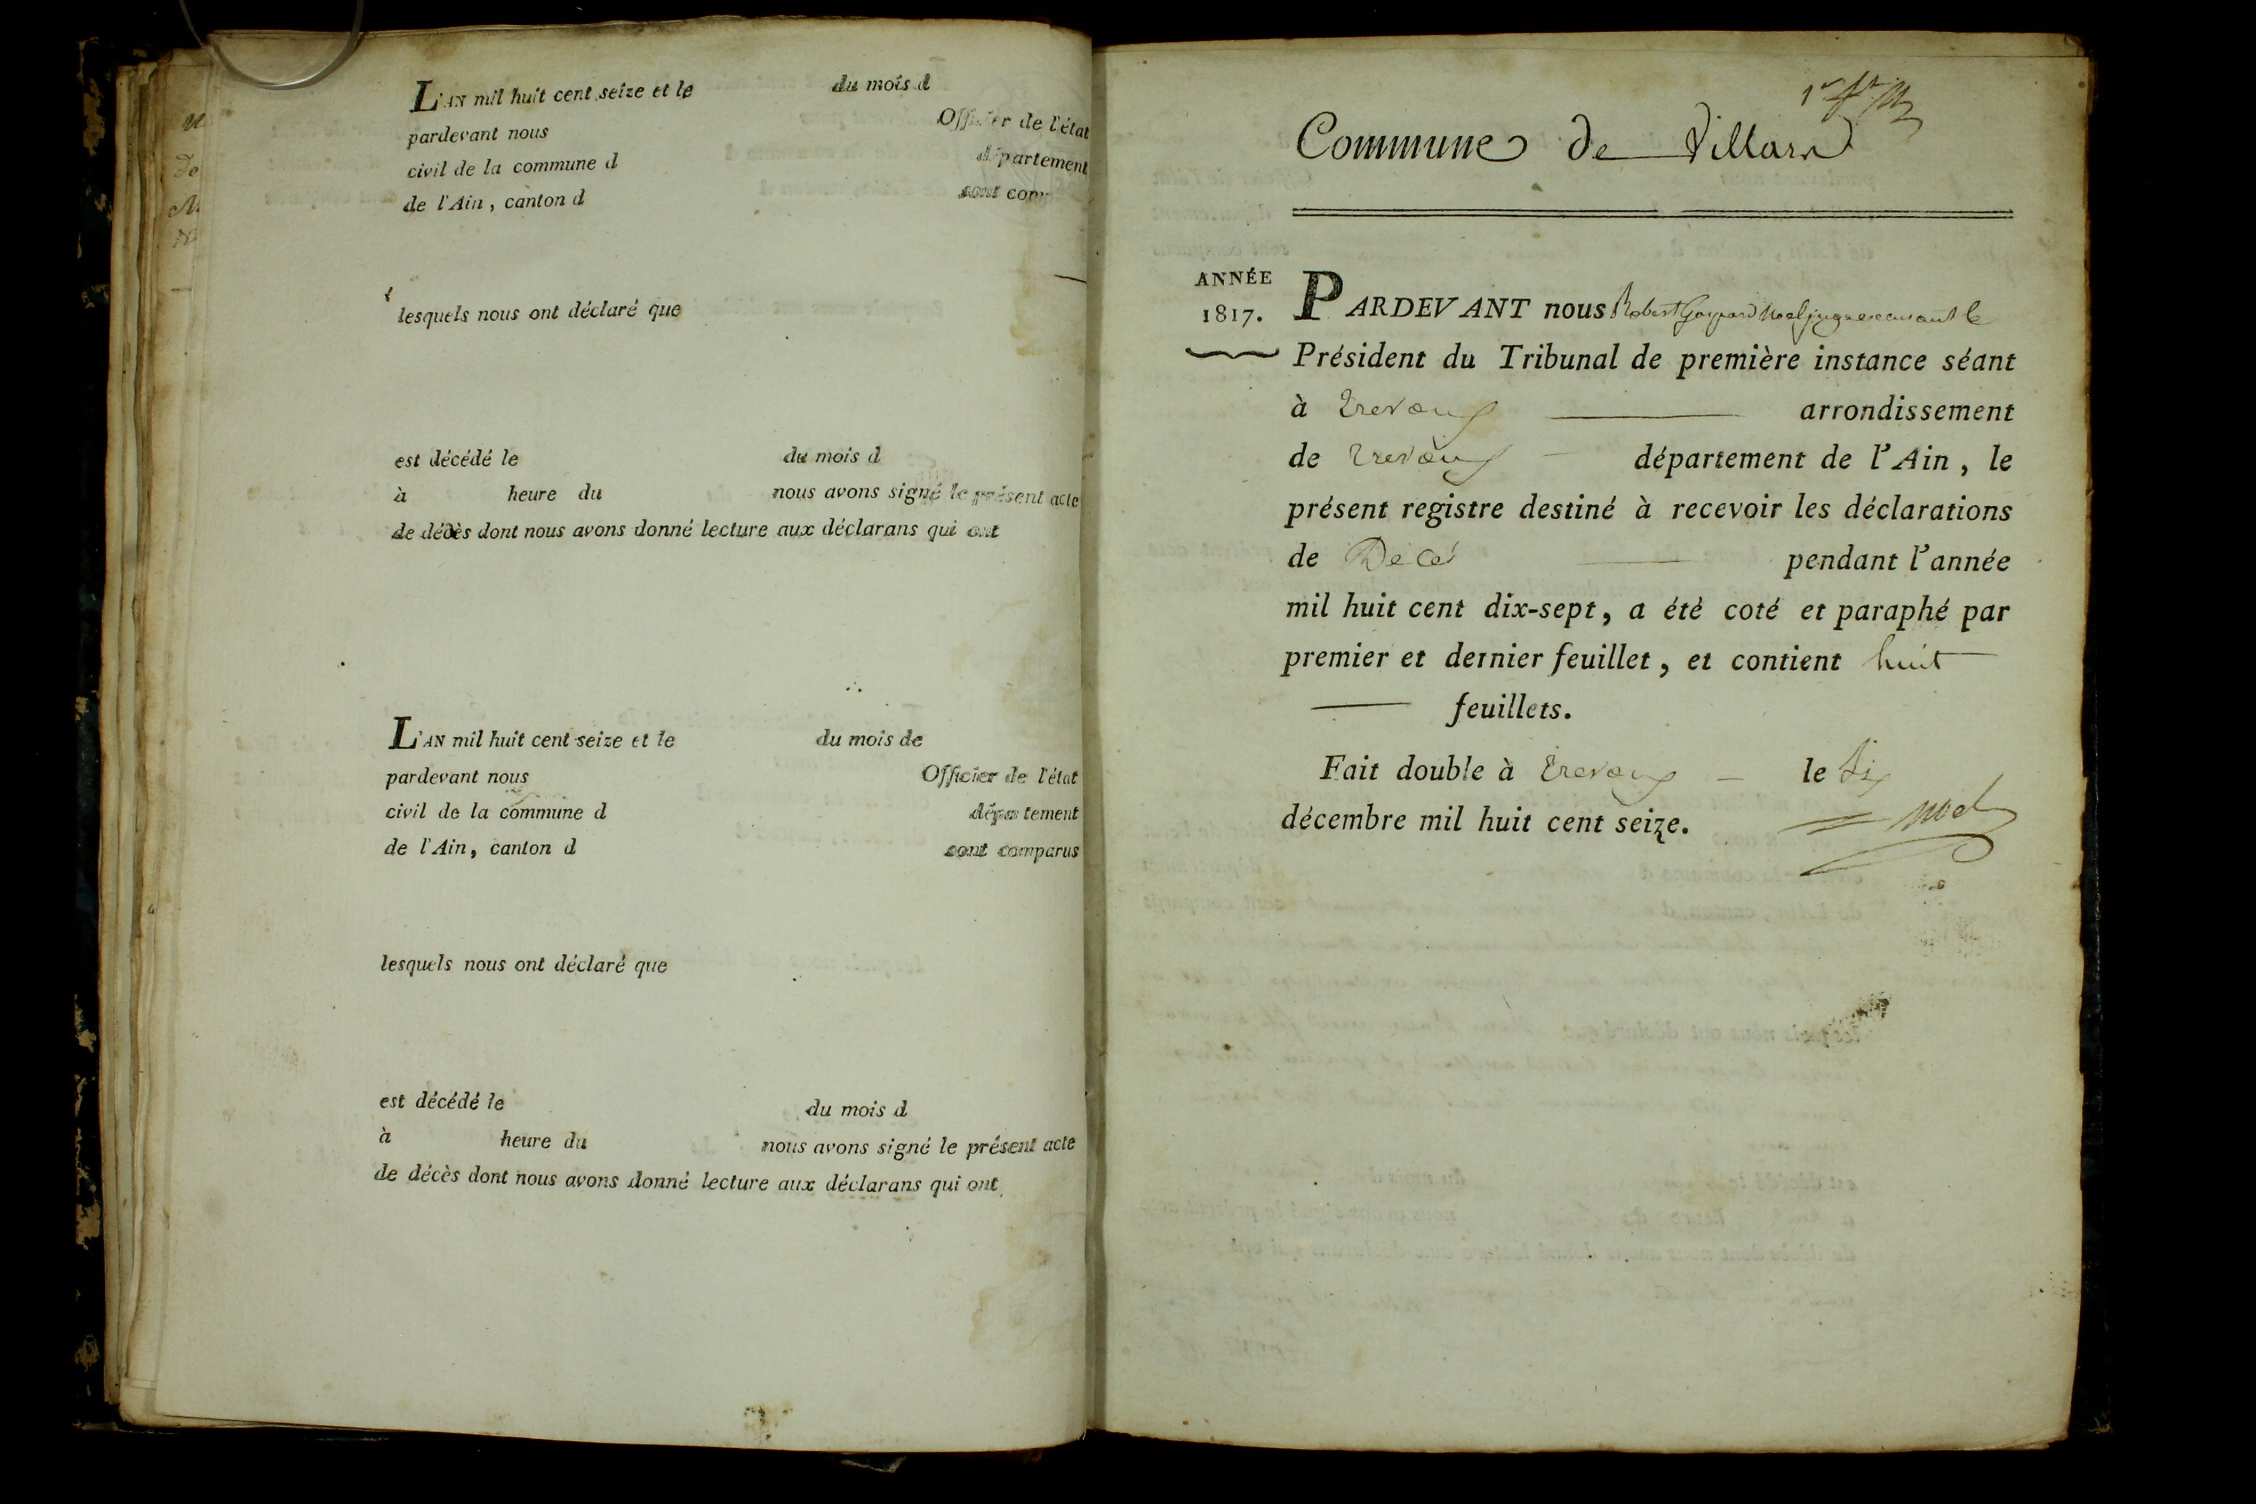 L'AN mil huit cent seize et le du mois d
pardevant nous Officier de l'état
civil de la commune d département
de l'Ain, canton d sont
lesquels nous ont déclaré que
est décédé le du mois d
à heure du nous avons signé le présent acte
de décès dont nous avons donné lecture aux déclarans qui ont
L'AN mil huit cent seize et le du mois de
pardevant nous Officier de l'état
civil de la commune d département
de l'Ain, canton d sont comparus
lesquels nous ont déclaré que
est décédé le du mois d
à heure du nous avons signé le présent acte
de décès dont nous avons donné lecture aux déclarans qui ont
Commune de Villars
ANNÉE
1817.
PARDEVANT nous Robert Gaspard Noel juge le
Président du Tribunal de première instance séant
à Trevoux arrondissement
de Trevoux département de l'Ain, le
présent registre destiné à recevoir les déclarations
de Décé pendant l'année
mil huit cent dix-sept, a été coté et paraphé par
premier et dernier feuillet, et contient huit
feuillets.
Fait double à Trevoux le dix
décembre mil huit cent seize.
Noel